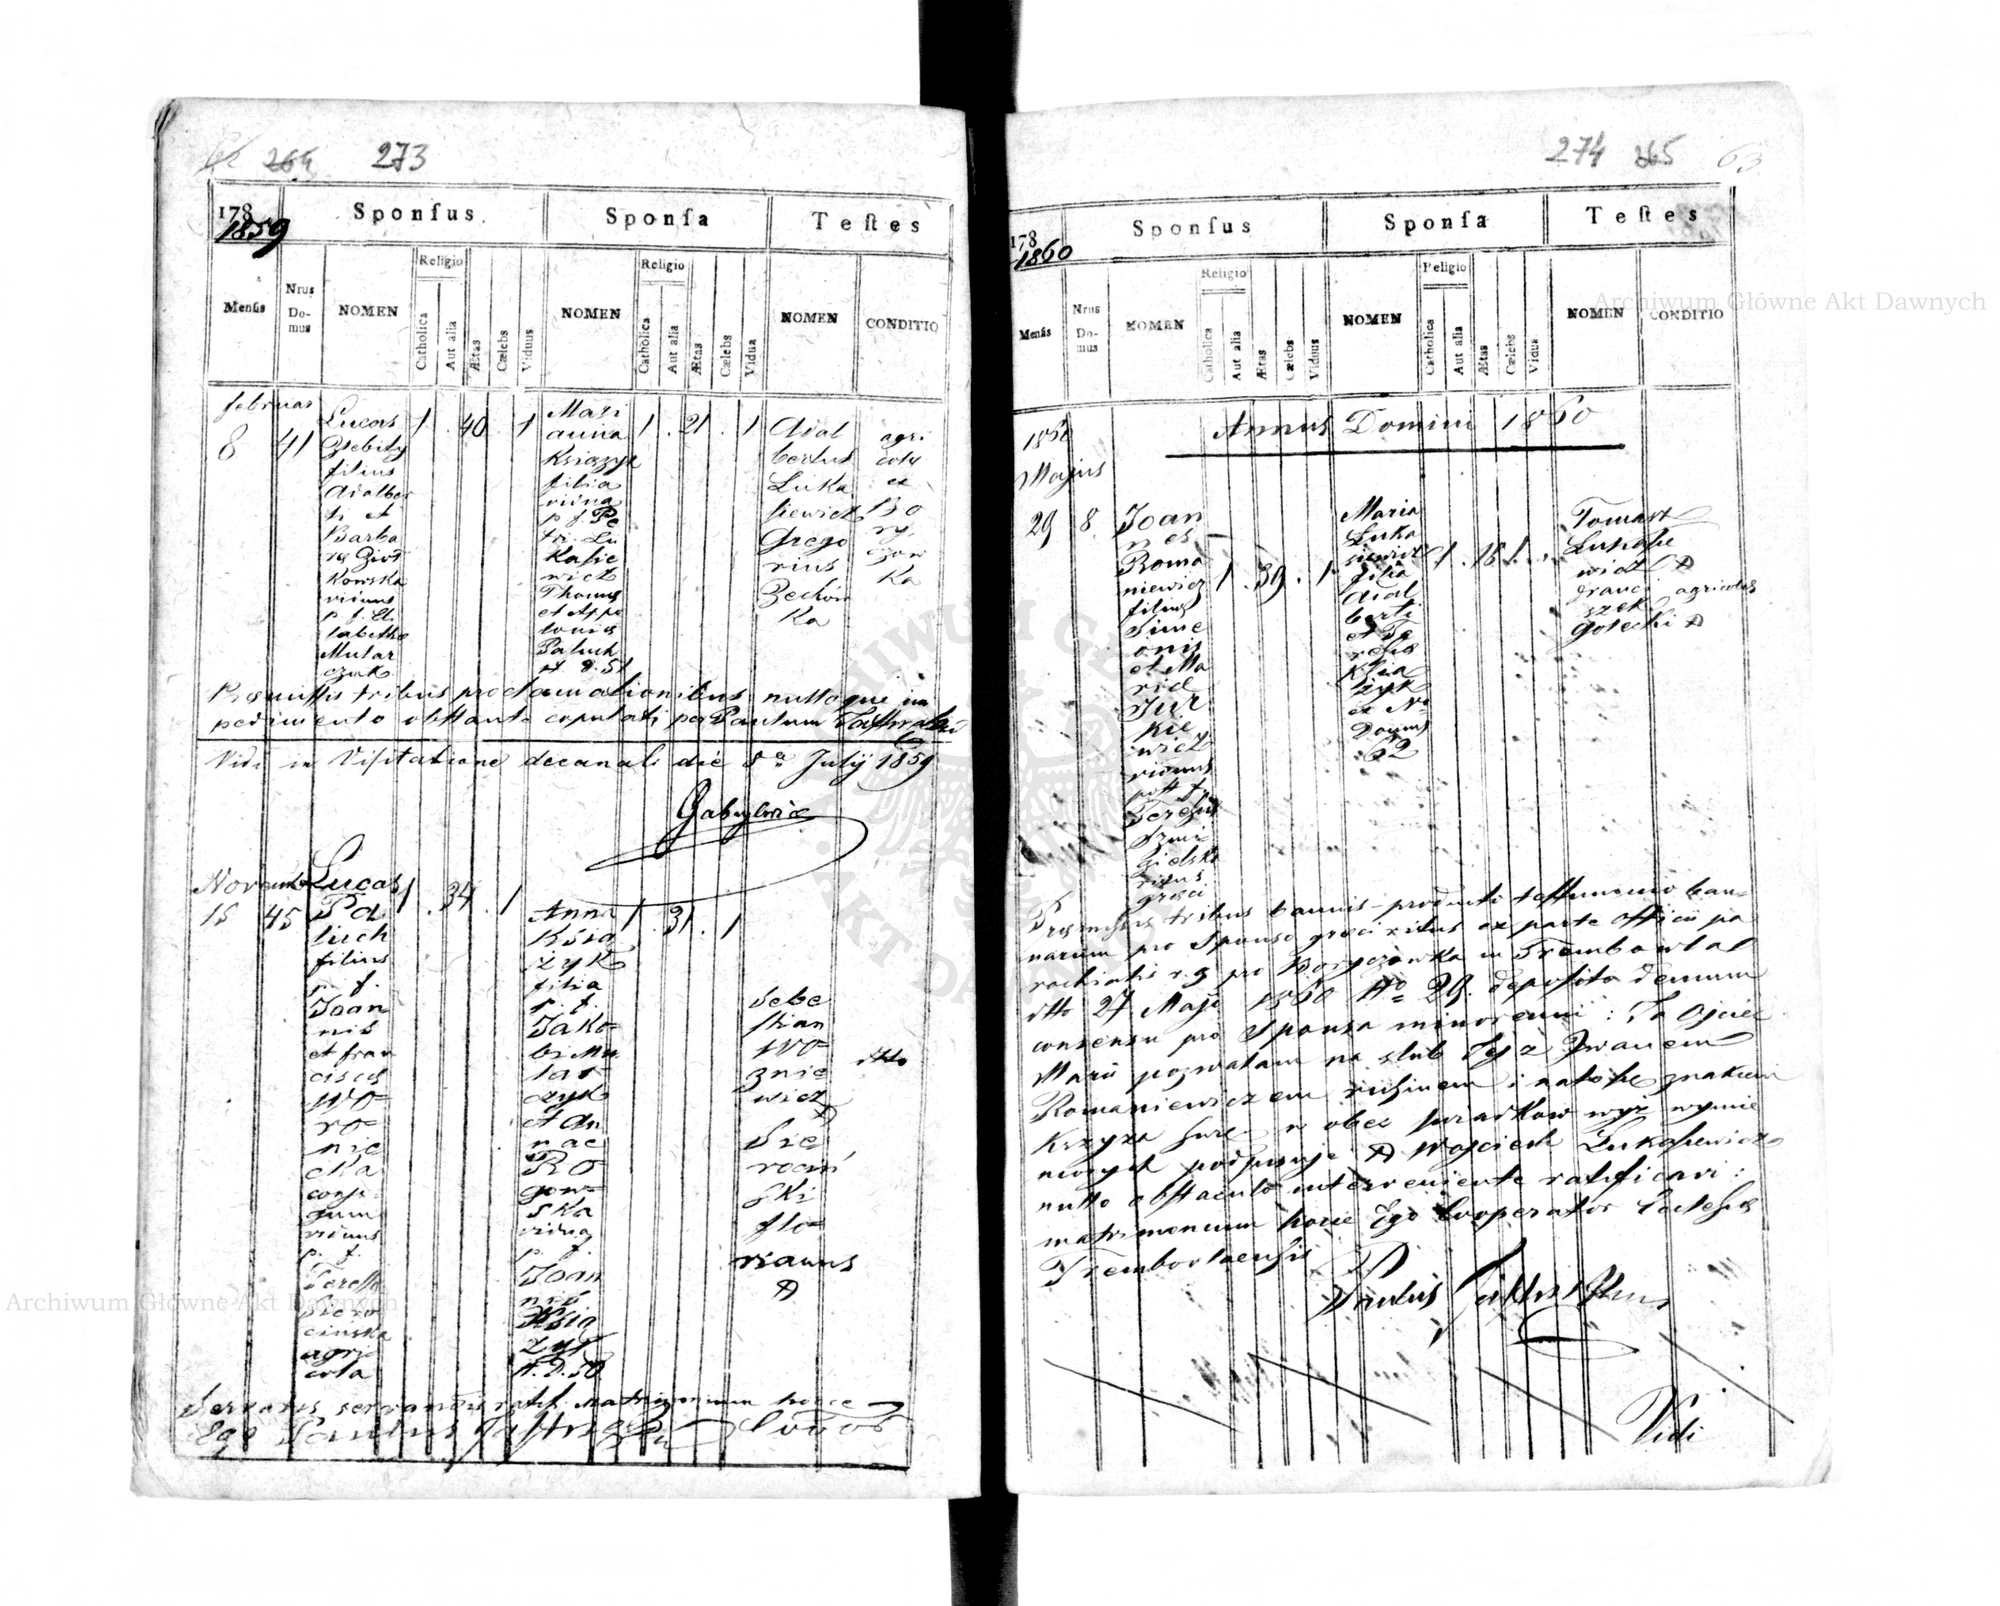 264 273
178
1859
Sponſus
Sponſa
Teſtes
Menſis
Nrus Do-mus
NOMEN
Religio
Catholica
Aut alia
Ætas
Cælebs
Viduus
NOMEN
Religio
Catholica
Aut alia
Ætas
Cælebs
Vidua
NOMEN
CONDITIO
februar
8 41
Lucas
filius
Adalber
ti et
Barba
kowska
viduus
p. f. El
1 . 40 . 1
Mari
anna
Książyk
filia
vidua
p. f. Pe
tri Lu
kasie
wicz
Thoms
et Appo
lonies
Paluch
1 . 21 . 1
Adal
bertus
Luka
siewicz
Grego
rius
Zechów
ka
agri
colæ
ex
Bo
ry
czow
ka
Præmiſſis tribus proclamationibus nulloque im
pedimento obſtante copulati per Paulum
Vidi in Viſitatione decanali die 8a Julij 1859
15 45
Lucas
Pa
luch
filius
p. f.
Joan
nis
et fran
cisces
Wo
ro
nie
cka
conju
gum
viduus
p. f.
Siero
cinska
agri
cola
1 . 34 . 1
Anna
Ksią
żyk
filia
p. f.
Jako
bi Mu
lar
czyk
et An
nae
Ro
gow
ska
vidua
p. f.
Joan
nis
Ksią
żyk
N. D. 50
1 . 31 . 1
Seba
stian
Wo
znie
wicz
Sie
rociń
ski
flo
rianus
dtto
Servatis servandis ratif. matrimonium hocce
Ego Paulus
274 265 63
178
1860
Sponſus
Sponſa
Teſtes
Menſis
Nrus Do-mus
NOMEN
Religio
Catholica
Aut alia
Ætas
Cælebs
Viduus
NOMEN
Religio
Catholica
Aut alia
Ætas
Cælebs
Vidua
NOMEN
CONDITIO
1860
Annus Domini 1860
Majus
29 8
Joan
nes
Roma
niewicz
filius
Sime
onis
et Ma
riæ
Jur
kie
wicz
viduus
poſt f.
ritus
græci
1 . 39 . 1
Maria
Luka
siewicz
filia
Adal
berti
et Te
resiæ
Ksią
żyk
ex No
Domus
62
1 . 18 1 .
Tomasz
Lukaſie
wicz
franci
szek
Gołecki
agricolæ
Præmiſſis tribus bannis producto teſtimonio ban-
norum pro Sponso græci ritus ex parte officii pa
rochialis r. g. pro Boryczowka in Trembowla
dtto 27 Maji 1860 No 29. depoſito demum
consensu pro Sponsa minorenni: Ja Ojciec
Marii pozwalam na slub Jej z Iwanem
Romaniewiczem rusinem i na to się znakiem
Krzyża Sw. w obec swiadkow wyż wymie
nionych podpisuje Wojciech Lukaſiewicz
nullo obſtaculo interveniente ratificavi:
matrimonium hocce Ego Cooperator Ecclesiæ
Tremborlaensis
Paulus
Vidi
Archiwum Główne Akt Dawnych
Archiwum Główne Akt Dawnych